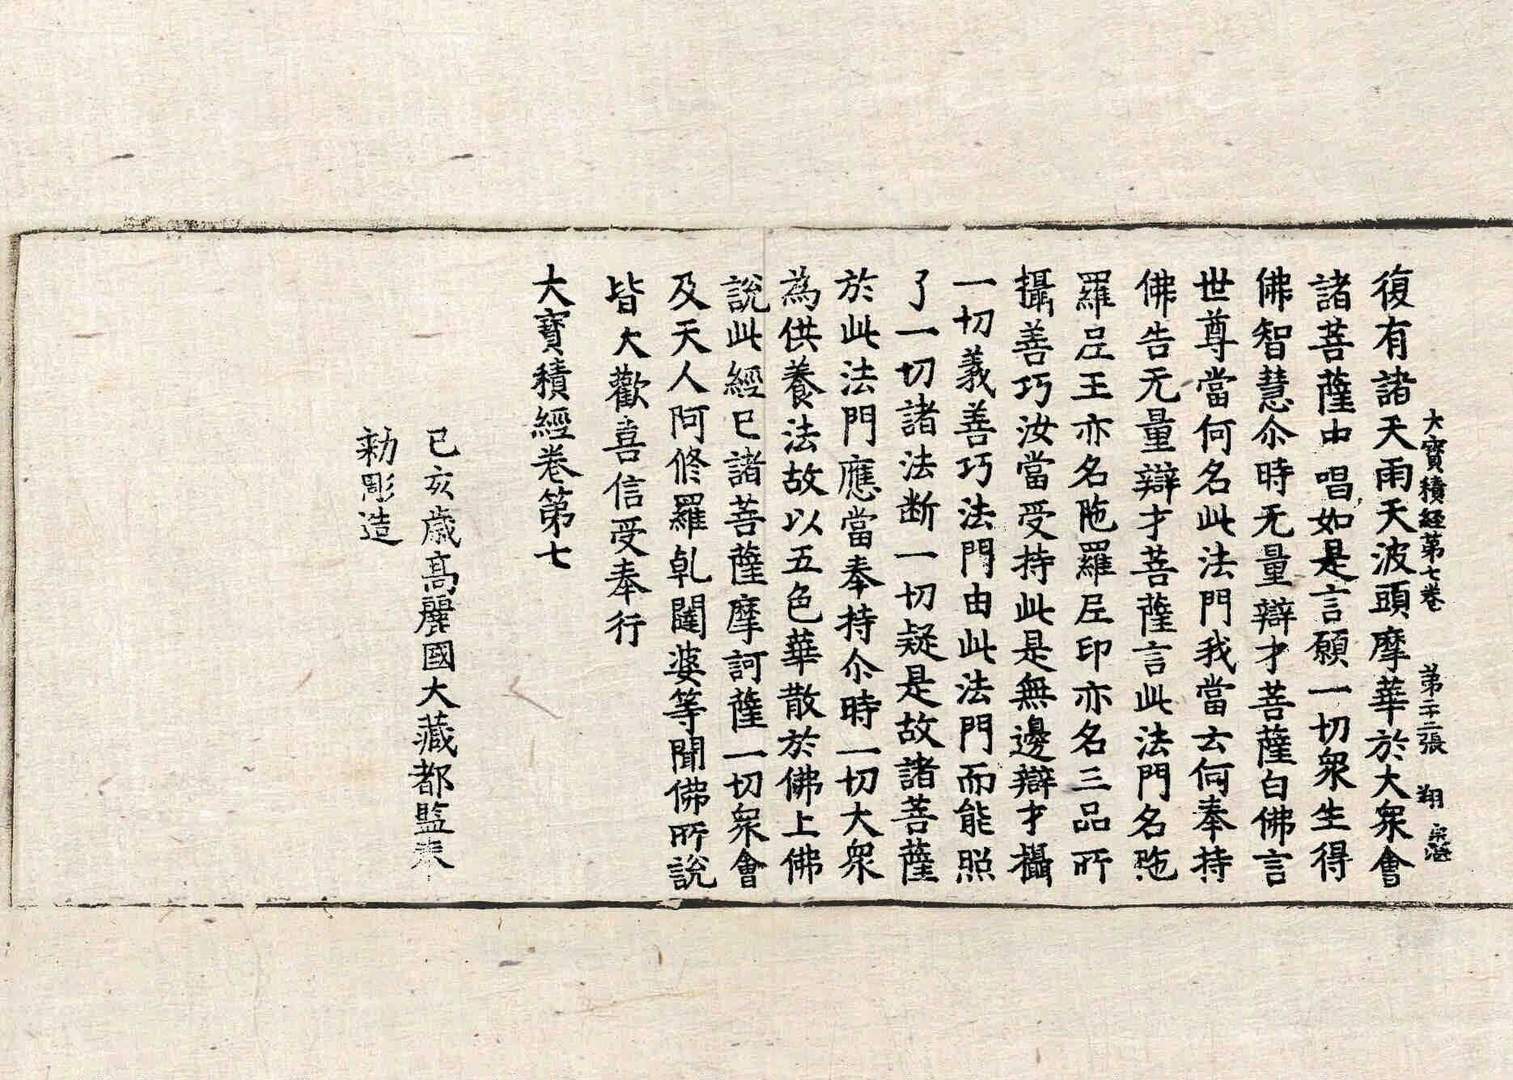 大寶積經第七卷　第二十二張　翔
復有諸天雨天波頭摩華於大衆會
諸菩薩中唱如是言願一切衆生得
佛智慧尒時无量辯才菩薩白佛言
世尊當何名此法門我當云何奉持
佛告无量辯才菩薩言此法門名陁
羅尼王亦名陁羅尼印亦名三品所
攝善巧汝當受持此是無邊辯才攝
一切義善巧法門由此法門而能照
了一切諸法断一切疑是故諸菩薩
於此法門應當奉持尒時一切大衆
為供養法故以五色華散於佛上佛
說此經已諸菩薩摩訶薩一切衆會
及天人阿修羅乹闥婆等聞佛所說
皆大歡喜信受奉行
大寶積經卷第七
己亥歲高麗國大藏都監奉
勑彫造